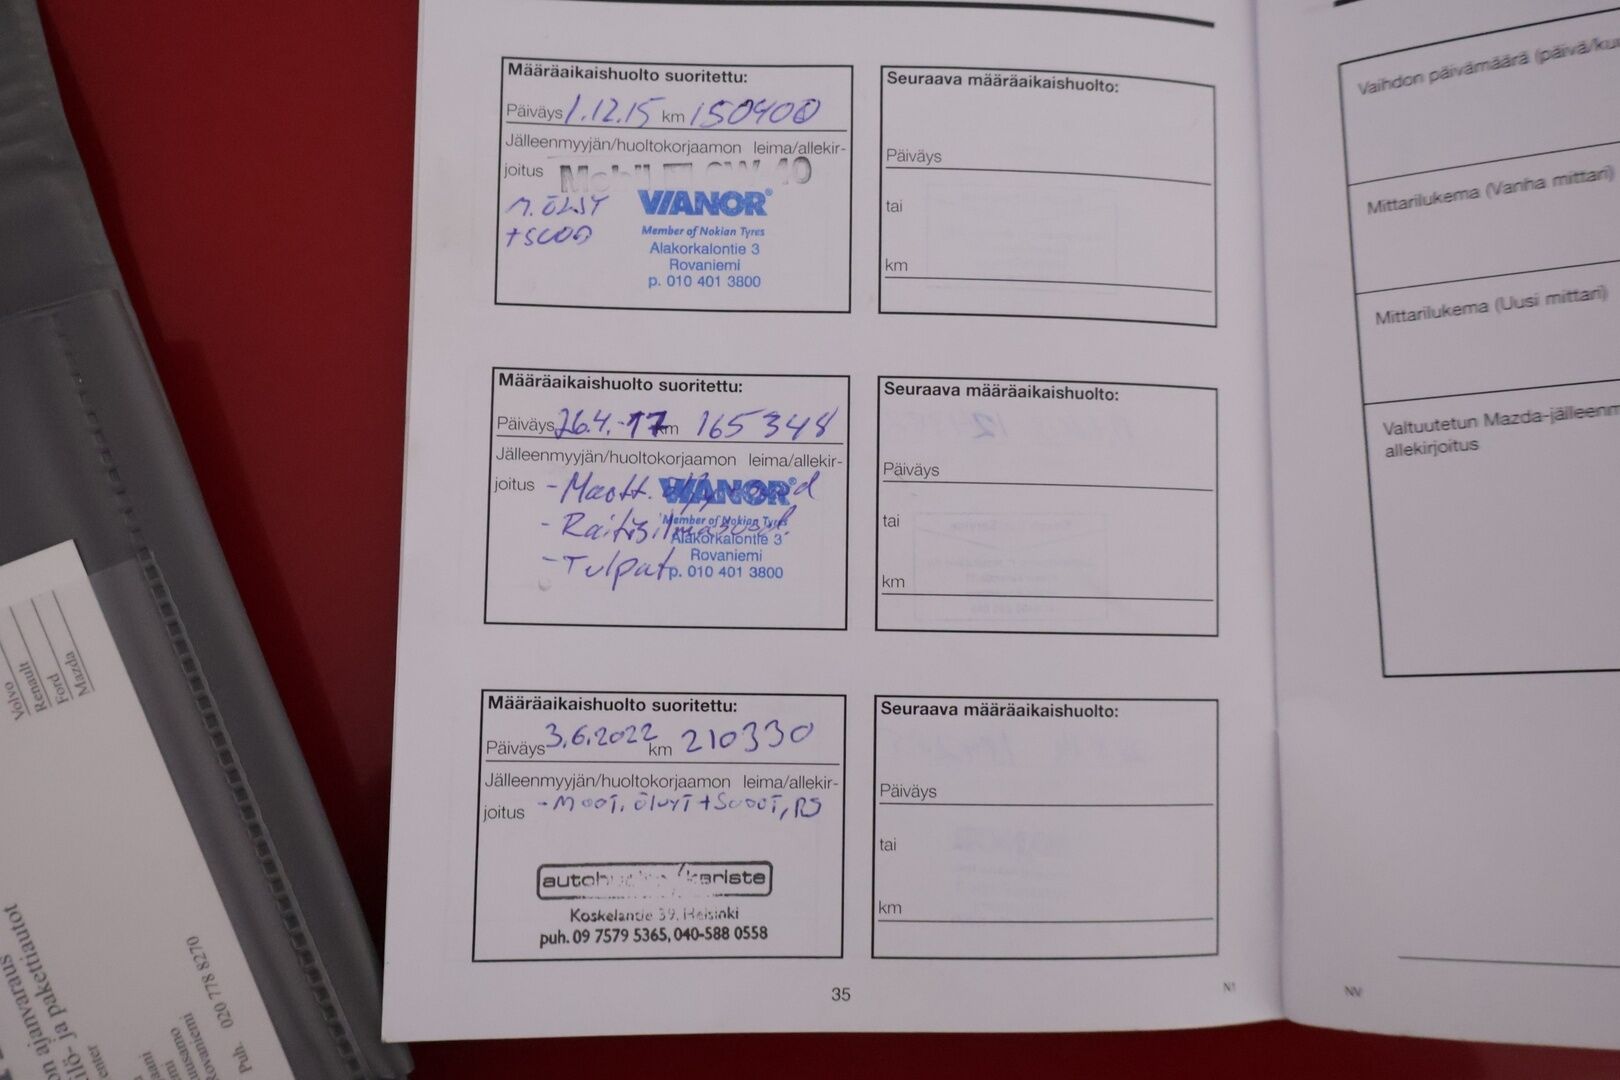 Määräaikaishuolto suoritettu:
Päiväys 1.12.15 km 150400
Jälleenmyyjän/huoltokorjaamon leima/allekir-
joitus
M. ÖLJYT
VIANOR®
Member of Nokian Tyres
Alakorkalontie 3
Rovaniemi
p. 010 401 3800
Seuraava määräaikaishuolto:
Päiväys
tai
km
Määräaikaishuolto suoritettu:
Päiväys 26.4.-17 km 165348
Jälleenmyyjän/huoltokorjaamon leima/allekir-
joitus - Moott.
- Raitisilmasuod.
- Tulpat
VIANOR®
Member of Nokian Tyres
Alakorkalontie 3
Rovaniemi
p. 010 401 3800
Seuraava määräaikaishuolto:
Päiväys
tai
km
Määräaikaishuolto suoritettu:
Päiväys 3.6.2022 km 210330
Jälleenmyyjän/huoltokorjaamon leima/allekir-
joitus
kariste
Koskelantie 39, Helsinki
puh. 09 7579 5365, 040-588 0558
Seuraava määräaikaishuolto:
Päiväys
tai
km
35
N1
Vaihdon päivämäärä
Mittarilukema (Vanha mittari)
Mittarilukema (Uusi mittari)
Valtuutetun
allekirjoitus
Volvo
Renault
Ford
Mazda
on ajanvaraus
ja pakettiautot
Rovaniemi
Puh. 020 778 8270